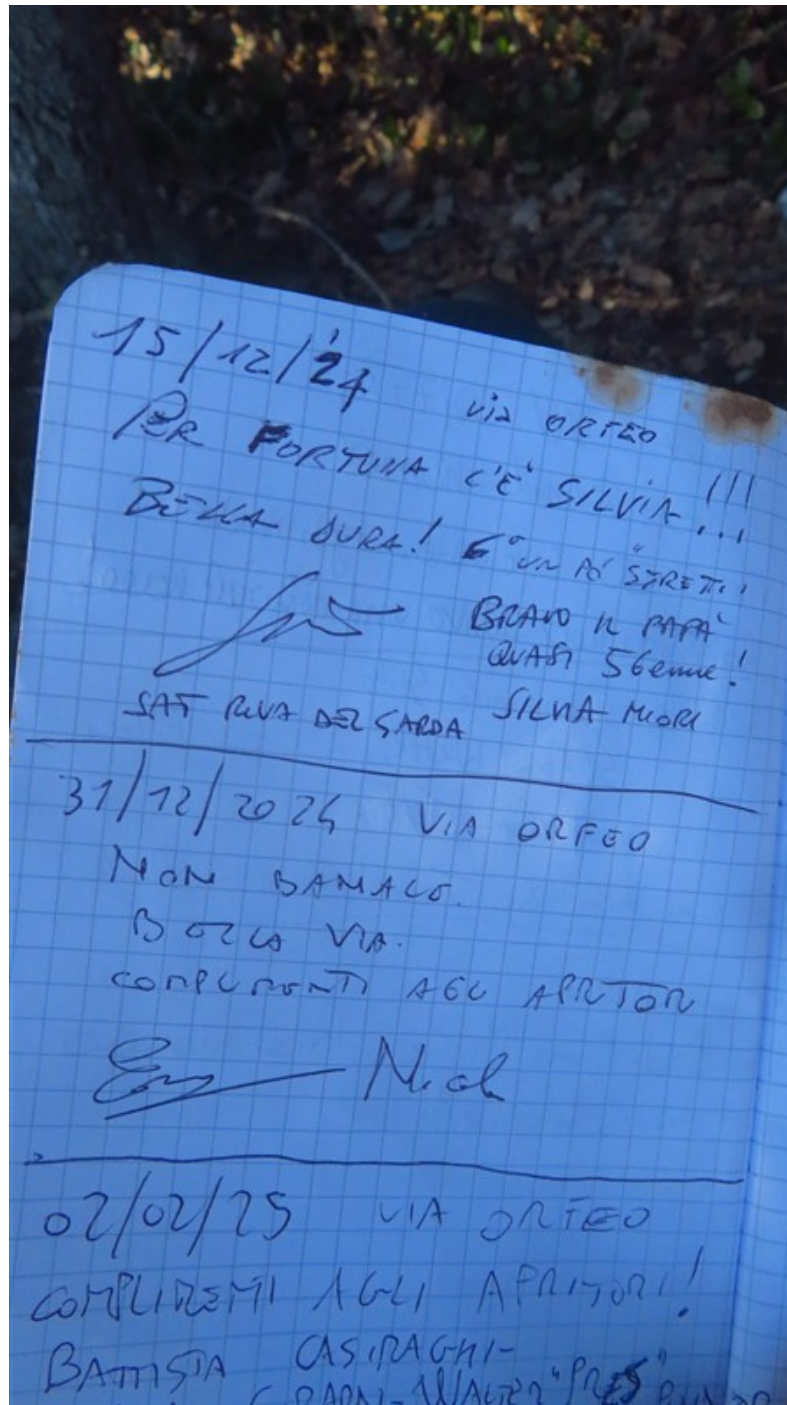 15/12/'24 via ORFEO
PER FORTUNA C'È SILVIA!!!
BELLA DURA! 6° UN PÒ "STRETTI"
BRAVO IL PAPÀ
QUASI 56enne!
SAT RIVA DEL GARDA SILVIA MIORI
31/12/2024 VIA ORFEO
NON BANALE.
BELLA VIA.
COMPLIMENTI AGLI APRITORI
02/02/25 VIA ORFEO
COMPLIMENTI AGLI APRITORI!
BATTISTA CASIRAGHI-
WALTER "PRES"